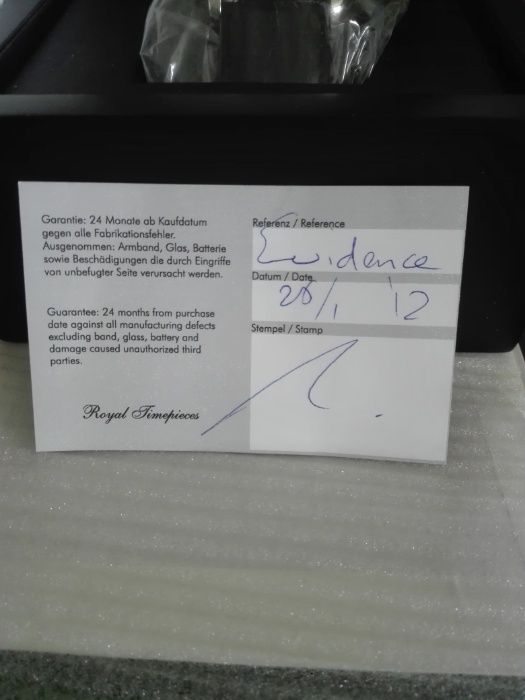 Garantie: 24 Monate ab Kaufdatum
gegen alle Fabrikationsfehler.
Ausgenommen: Armband, Glas, Batterie
sowie Beschädigungen die durch Eingriffe
von unbefugter Seite verursacht werden.
Guarantee: 24 months from purchase
date against all manufacturing defects
excluding band, glass, battery and
damage caused unauthorized third
parties.
Royal Timepieces
Referenz / Reference
Evidence
Datum / Date
28/1 '12
Stempel / Stamp